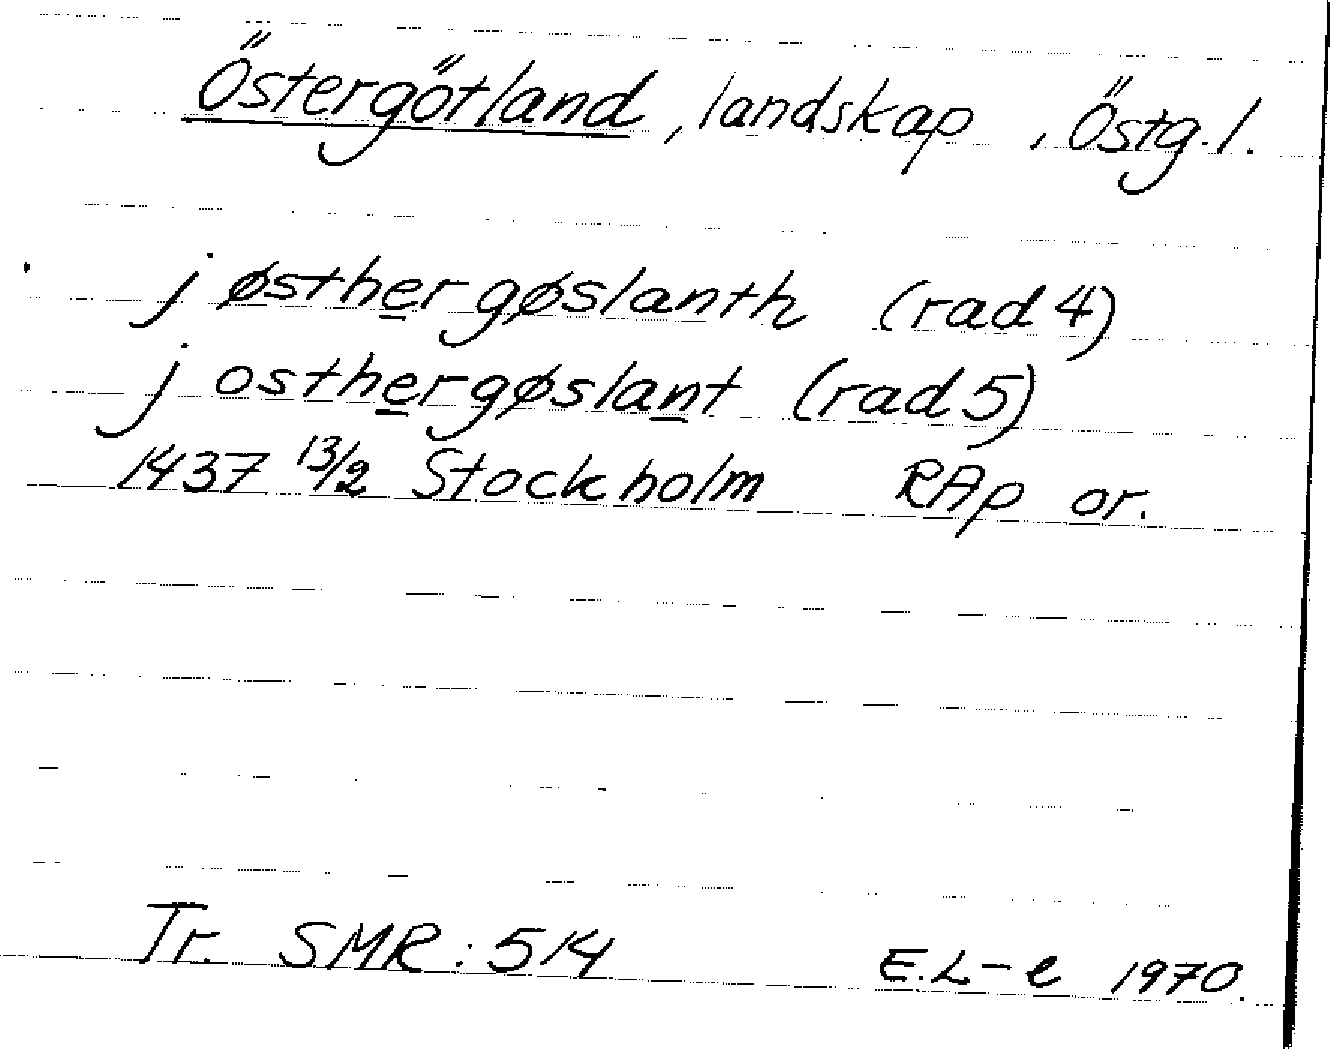 Östergötland, landskap, Östg.l.
j østhergøslanth (rad 4)
j osthergøslant (rad 5)
1437 13/2 Stockholm RAp or.
Tr. SMR: 514 E.L-e 1970.